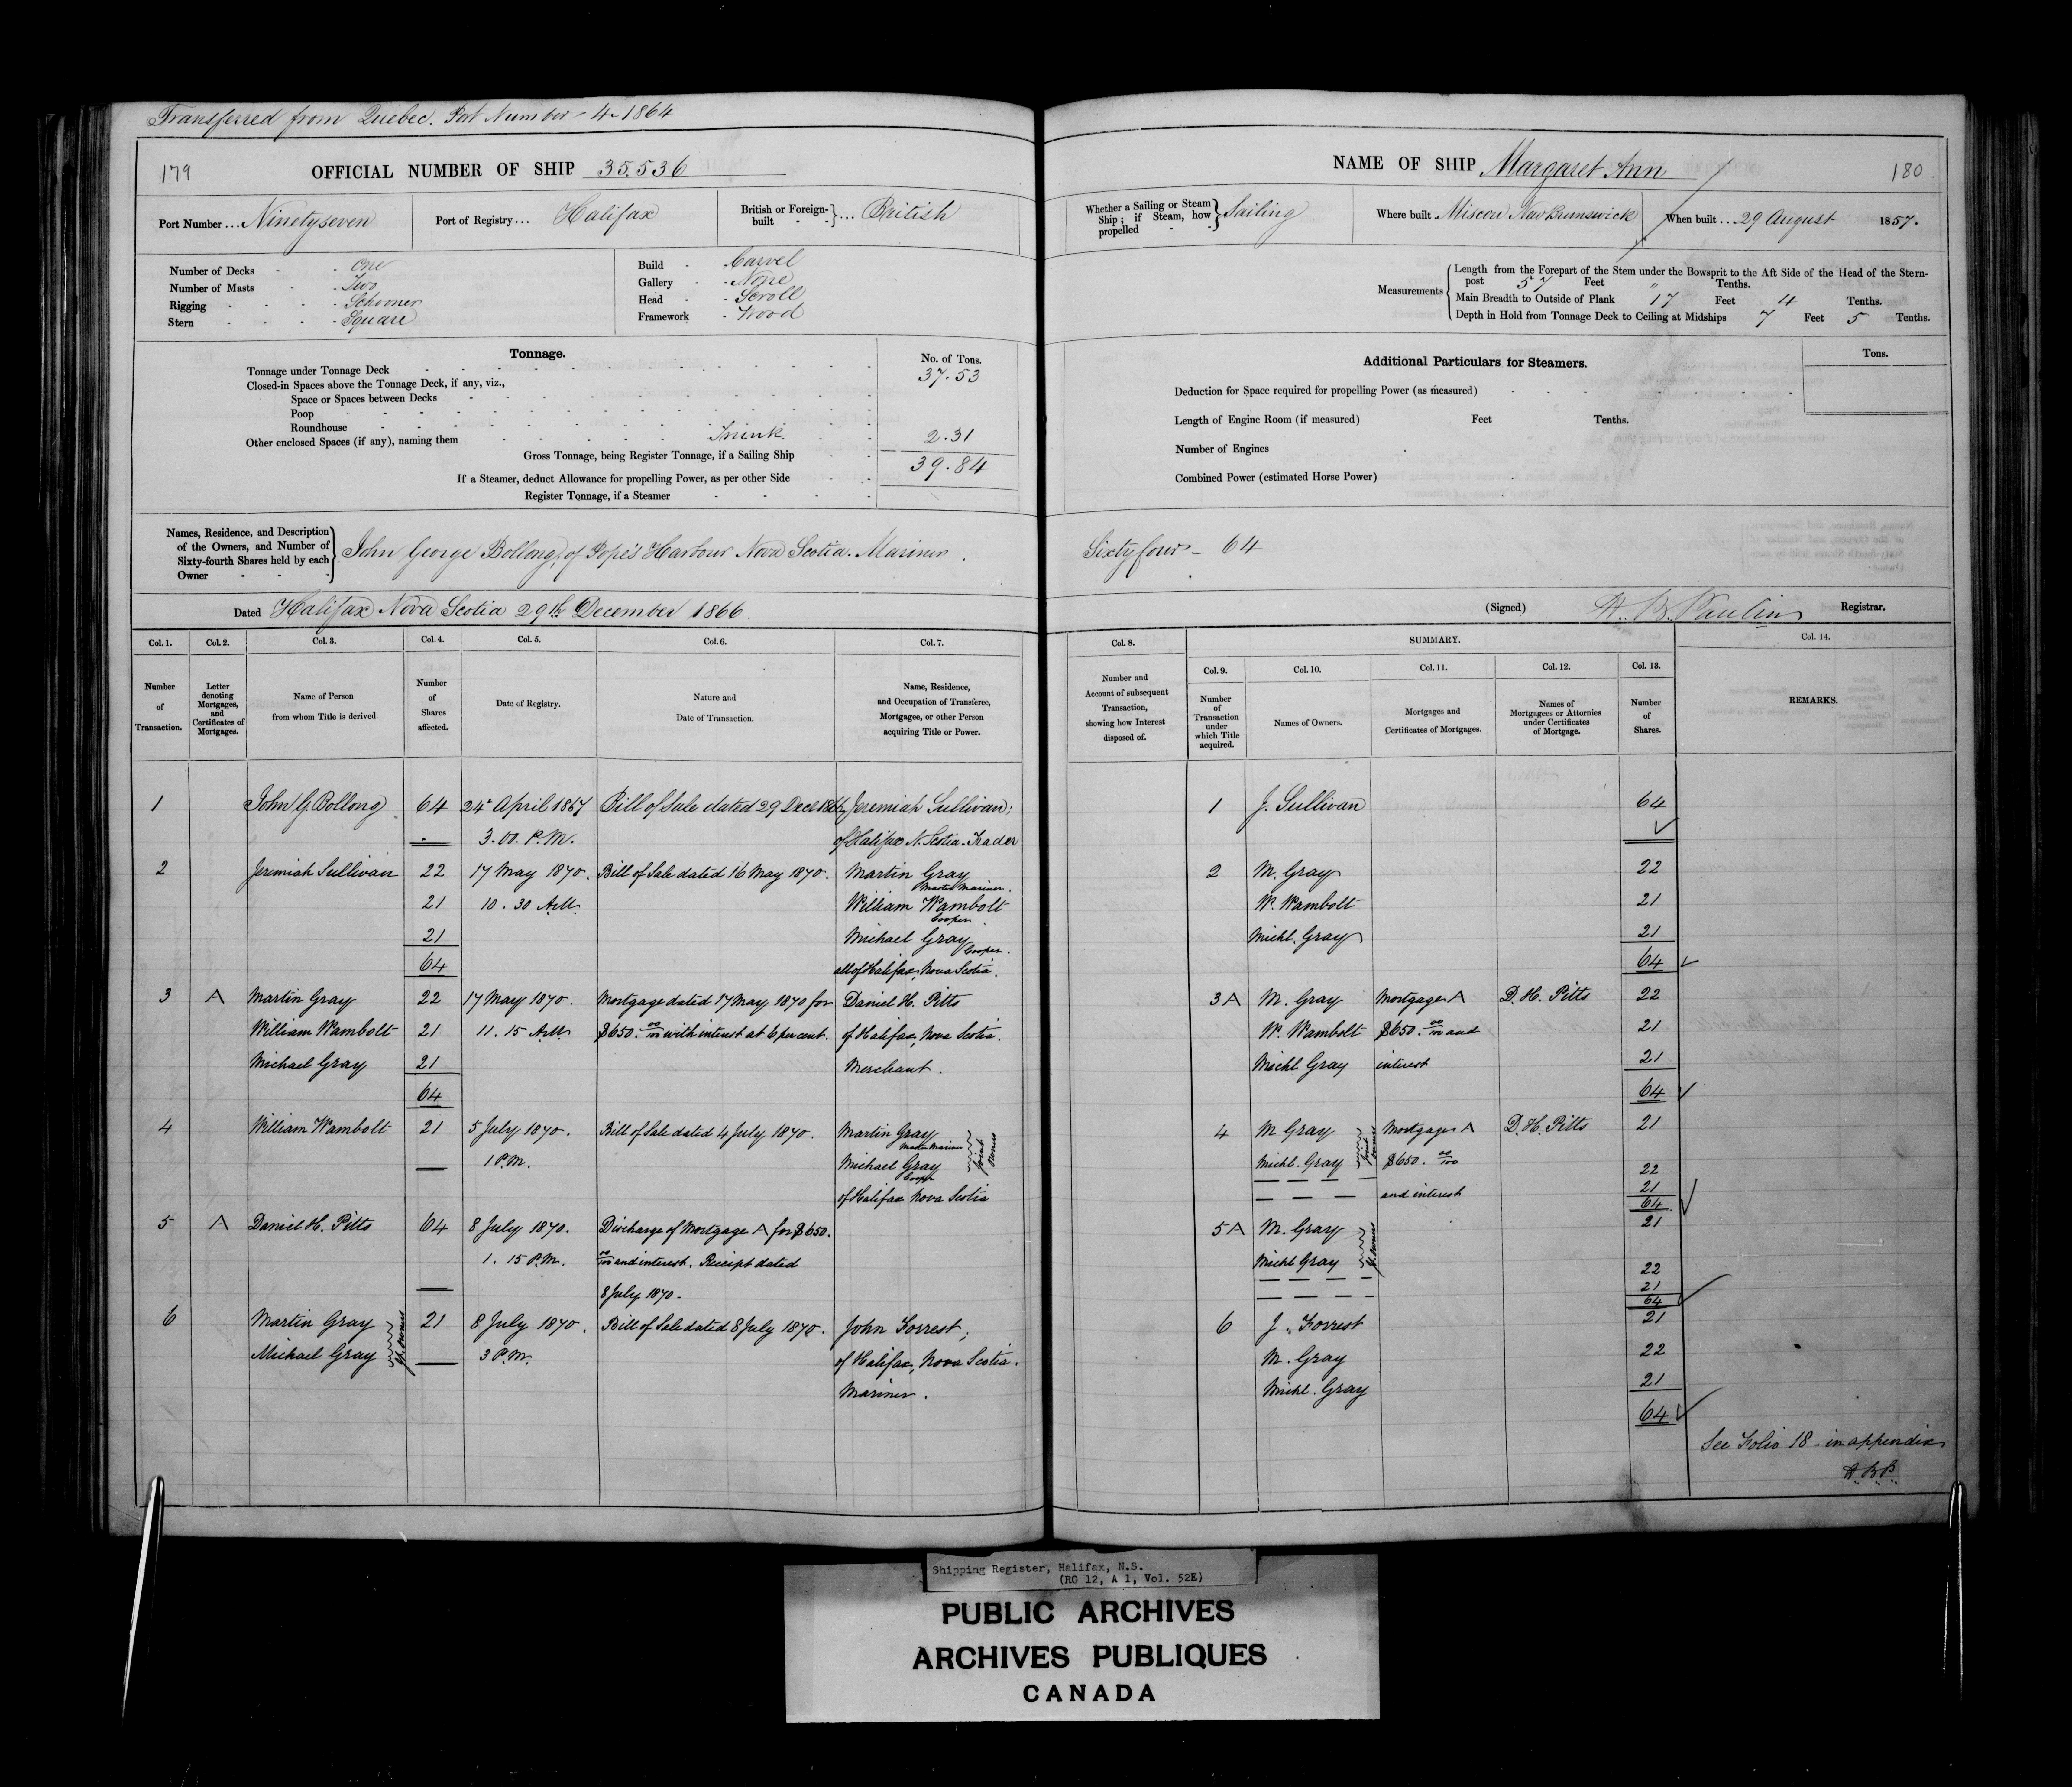 Transferred from Quebec. Port Number 4-1864
179
OFFICIAL NUMBER OF SHIP 35.536
Port Number ... Ninetyseven
Port of Registry ... Halifax
British or Foreign-built } ... British
Number of Decks - One
Number of Masts - Two
Rigging - Schooner
Stern - Square
Build - Carvel
Gallery - None
Head - Scroll
Framework - Wood
Tonnage.
No. of Tons.
Tonnage under Tonnage Deck 37.53
Closed-in Spaces above the Tonnage Deck, if any, viz.,
Space or Spaces between Decks
Poop
Roundhouse
Other enclosed Spaces (if any), naming them Trunk. 2.31
Gross Tonnage, being Register Tonnage, if a Sailing Ship 39.84
If a Steamer, deduct Allowance for propelling Power, as per other Side
Register Tonnage, if a Steamer
Names, Residence, and Description of the Owners, and Number of Sixty-fourth Shares held by each Owner } John George Bollong, of Pope's Harbour Nova Scotia. Mariner.
Dated Halifax Nova Scotia 29th December 1866.
Col. 1. Col. 2. Col. 3. Col. 4. Col. 5. Col. 6. Col. 7.
Number of Transaction.
Letter denoting Mortgages, and Certificates of Mortgages.
Name of Person from whom Title is derived
Number of Shares affected.
Date of Registry.
Nature and Date of Transaction.
Name, Residence, and Occupation of Transferee, Mortgagee, or other Person acquiring Title or Power.
1 John G Bollong 64 24 April 1867 Bill of Sale dated 29 Decr 1866 Jeremiah Sullivan;
3.00. P.M. of Halifax N. Scotia. Trader
2 Jeremiah Sullivan 22 17 May 1870. Bill of Sale dated 16 May 1870. Martin Gray
Master Mariner.
21 10.30 A.M. William Wambolt
Cooper
21 Michael Gray
Cooper.
64 all of Halifax, Nova Scotia.
3 A Martin Gray 22 17 May 1870. Mortgage dated 17 May 1870 for Daniel H. Pitts
William Wambolt 21 11.15 A.M. $650. 00/100 with interest at 6 per cent. of Halifax, Nova Scotia.
Michael Gray 21 Merchant.
64
4 William Wambolt 21 5 July 1870. Bill of Sale dated 4 July 1870. Martin Gray
Master Mariner
1 P.M. Michael Gray
Cooper
Joint Owners
of Halifax Nova Scotia
5 A Daniel H. Pitts 64 8 July 1870. Discharge of Mortgage A for $650.
1.15 P.M. 00/100 and interest. Receipt dated
8 July 1870.
6 Martin Gray 21 8 July 1870. Bill of Sale dated 8 July 1870. John Forrest;
Michael Gray 3 P.M. of Halifax, Nova Scotia.
Jt. Owners
Mariner.
NAME OF SHIP Margaret Ann
180
Whether a Sailing or Steam Ship; if Steam, how propelled } Sailing
Where built Miscou New Brunswick
When built ... 29 August 1857.
Measurements
Length from the Forepart of the Stem under the Bowsprit to the Aft Side of the Head of the Stern-
post 57 Feet " Tenths.
Main Breadth to Outside of Plank 17 Feet 4 Tenths.
Depth in Hold from Tonnage Deck to Ceiling at Midships 7 Feet 5 Tenths.
Additional Particulars for Steamers.
Tons.
Deduction for Space required for propelling Power (as measured)
Length of Engine Room (if measured) Feet Tenths.
Number of Engines
Combined Power (estimated Horse Power)
Sixty four - 64
(Signed) H. B. Paulin Registrar.
Col. 8. SUMMARY. Col. 14.
Col. 9. Col. 10. Col. 11. Col. 12. Col. 13.
Number and Account of subsequent Transaction, showing how Interest disposed of.
Number of Transaction under which Title acquired.
Names of Owners.
Mortgages and Certificates of Mortgages.
Names of Mortgagees or Attornies under Certificates of Mortgage.
Number of Shares.
REMARKS.
1 J. Sullivan 64
2 M. Gray 22
W. Wambolt 21
Michl. Gray 21
64
3 A M. Gray Mortgage A D. H. Pitts 22
W. Wambolt $650. 00/100 and 21
Michl Gray interest 21
64
4 M Gray Mortgage A D. H. Pitts 21
Michl. Gray $650. 00/100
Joint Owners
22
and interest 21
64
5 A M. Gray 21
Michl Gray
Jt. Owners
22
21
64
6 J. Forrest 21
M. Gray 22
Michl. Gray 21
64
See Folio 18 - in appendix
H.B.P.
Shipping Register, Halifax, N.S.
(RG 12, A 1, Vol. 52E)
PUBLIC ARCHIVES
ARCHIVES PUBLIQUES
CANADA